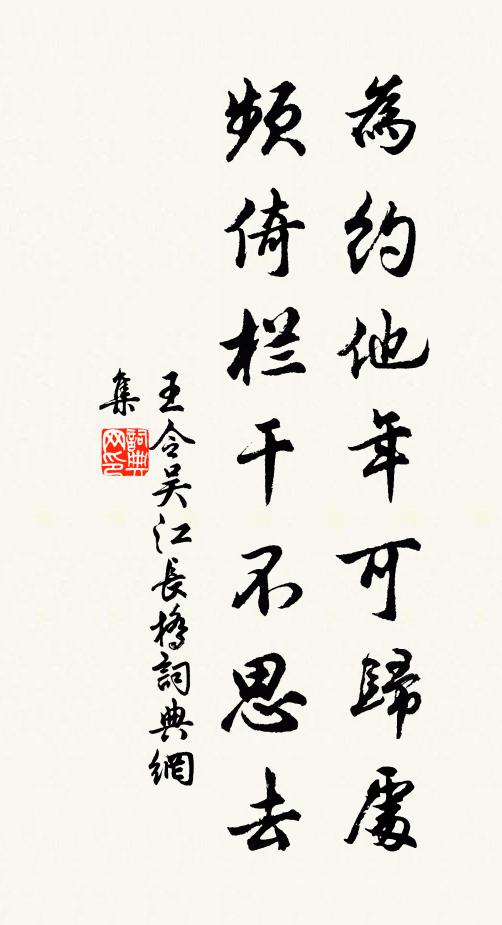 為約他年可歸處
頻倚栏干不思去
王令吴江長橋詞典網
集
詞典
网印